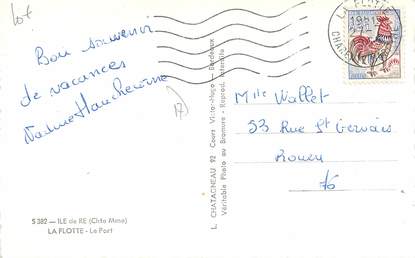 lot
Bon souvenir
de vacances
Nadine
17
S 382 — ILE de RE (Chte Mme)
LA FLOTTE - Le Port
L. CHATAGNEAU 92 Cours Victor-Hugo — Bordeaux
Véritable Photo au Bromure - Reprod. interdite
LA FLOTTE
CHARENTE
Mlle Vallet
53 Rue St Gervais
Rouen
76